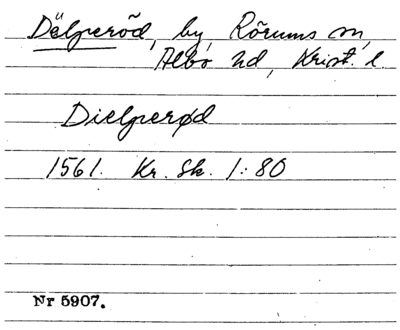 Dälperöd, by, Rörums sn,
Albo hd, Krist. l.
Dielperød
1561. Kr. Sk. 1:80
Nr 5907.